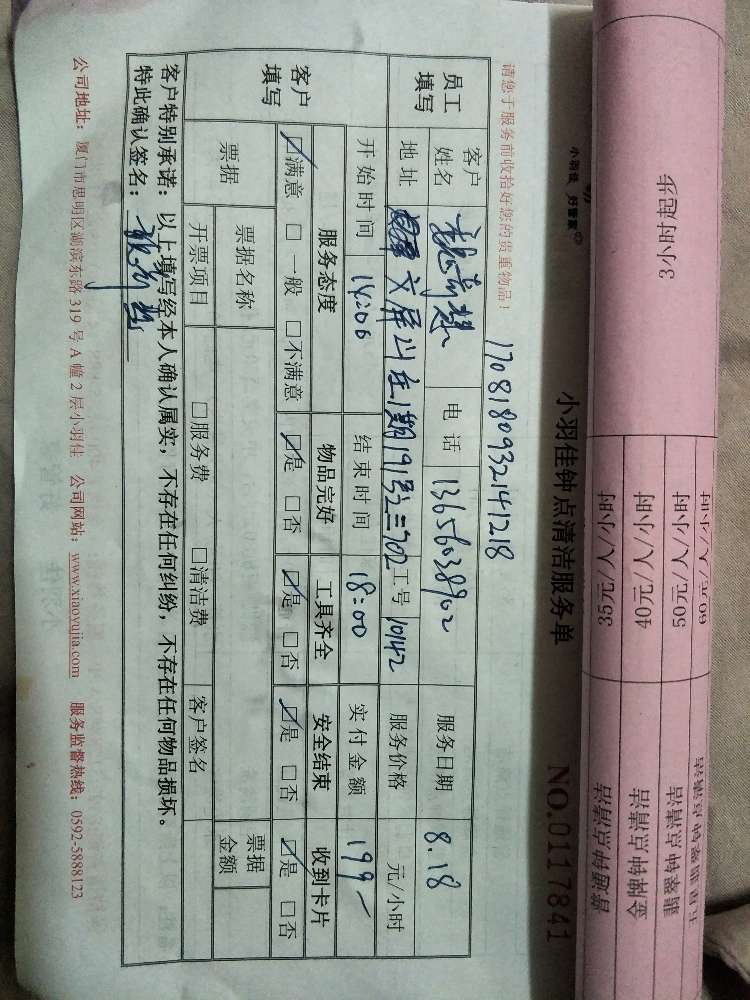 3小时起步
35元/人/小时
40元/人/小时
50元/人/小时
60元/人/小时
金牌钟点清洁
小羽佳 好管家
小羽佳钟点清洁服务单
NO.0117841
170818093214 1218
请您于服务前收拾好您的贵重物品!
员工填写
客户姓名
电话 13656038902
服务日期 8.18
地址 文屏山庄1期191号之二702
工号 10142
服务价格 元/小时
客户填写
开始时间 14:00
结束时间 18:00
实付金额 199-
服务态度 物品完好 工具齐全 安全结束 收到卡片
☑满意 □一般 □不满意 ☑是 □否 ☑是 □否 ☑是 □否 ☑是 □否
票据 票据名称 票据金额
开票项目 □服务费 □清洁费 客户签名
客户特别承诺:以上填写经本人确认属实,不存在任何纠纷,不存在任何物品损坏。
特此确认签名:
公司地址:厦门市思明区湖滨东路319号A幢2层小羽佳 公司网站:www.xiaoyujia.com 服务监督热线:0592-5888123